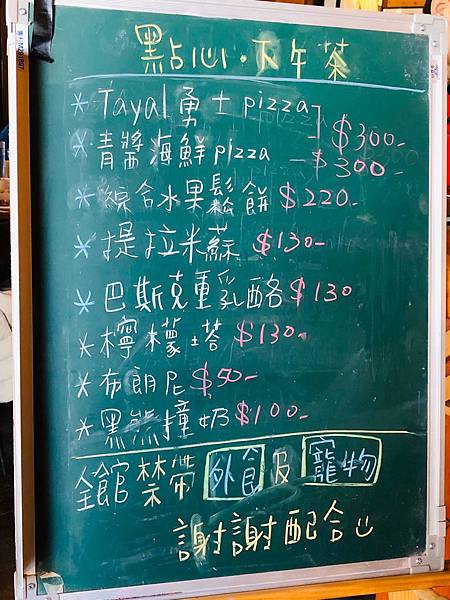 點心·下午茶
* Tayal勇士pizza
* 青醬海鮮pizza
$300-
-$300-
* 綜合水果鬆餅 $220-
* 提拉米蘇 $130-
* 巴斯克重乳酪 $130
* 檸檬塔 $130-
* 布朗尼 $50-
* 黑熊撞奶 $100-
全館禁帶外食及寵物
謝謝配合